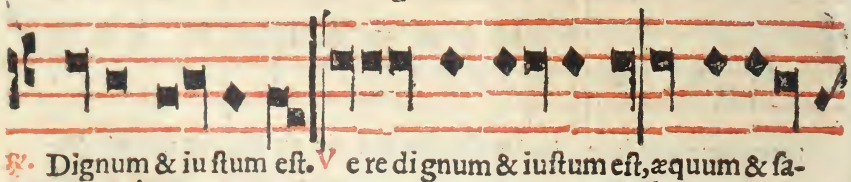 ℟. Dignum & iu ſtum eſt. V e re di gnum & iuſtum eſt, æquum & ſa-